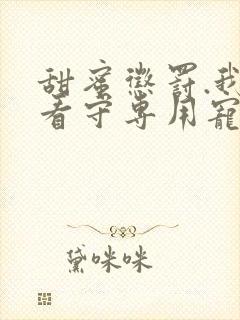 甜蜜懲罰.我
看守專用寵
黛咪咪